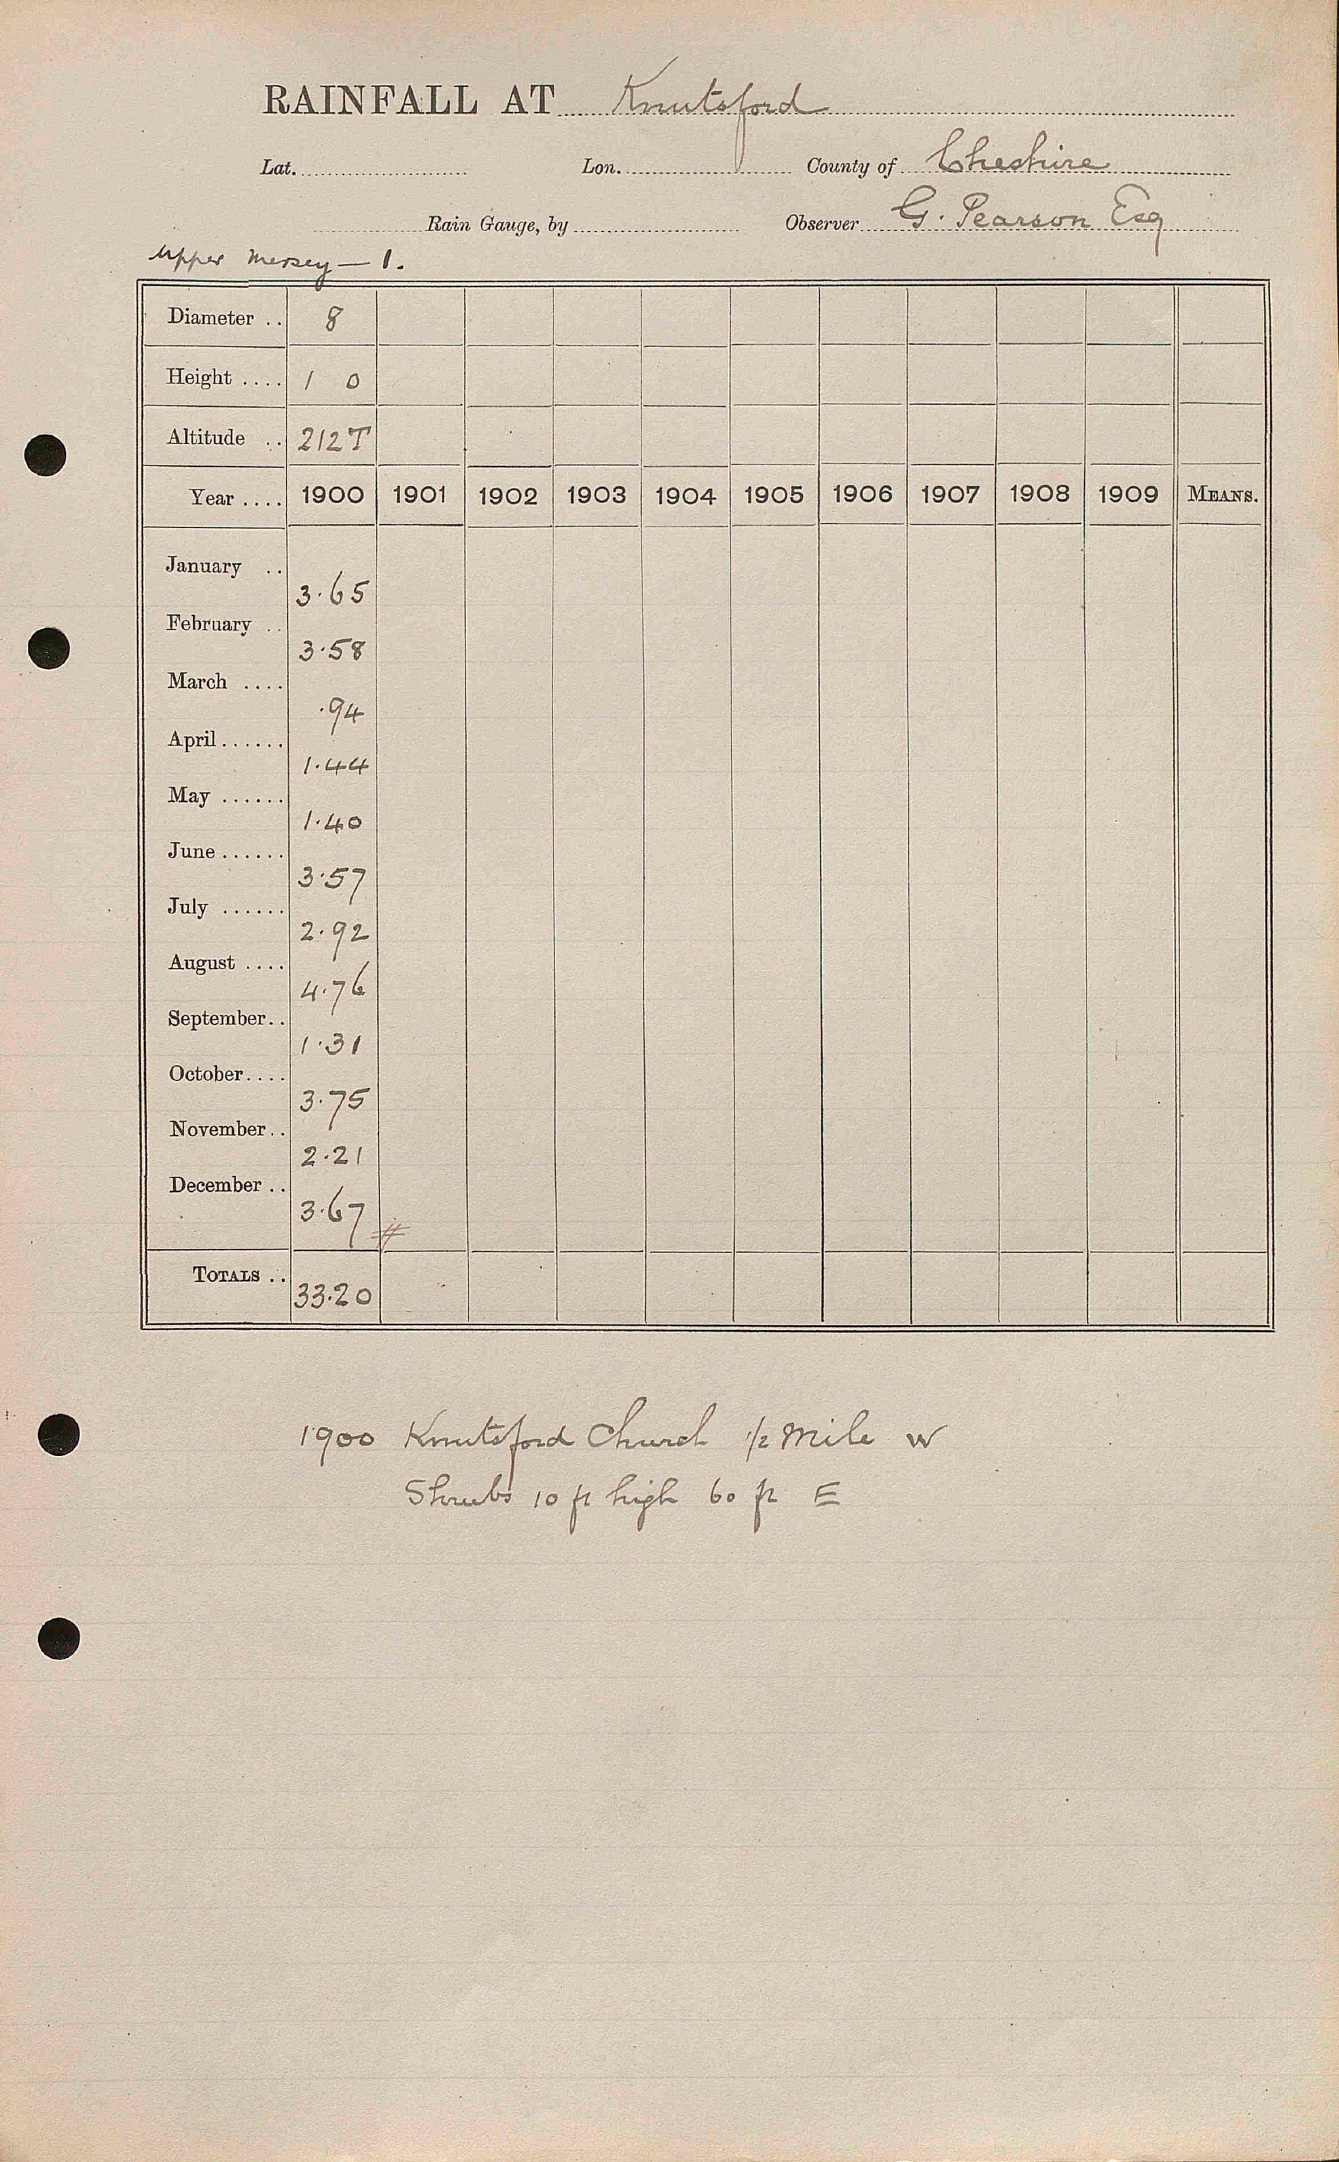 RAINFALL AT Knutsford
Lat. Lon. County of Cheshire
Rain Gauge, by Observer G. Pearson Esq
Upper Mersey — 1.
Diameter .. 8
Height .... 1 0
Altitude .. 212T
Year .... 1900 1901 1902 1903 1904 1905 1906 1907 1908 1909 MEANS.
January .. 3.65
February .. 3.58
March .... .94
April ...... 1.44
May ...... 1.40
June ...... 3.57
July ...... 2.92
August .... 4.76
September .. 1.31
October .... 3.75
November .. 2.21
December .. 3.67 #
TOTALS .. 33.20
1900 Knutsford Church 1/2 Mile W
Shrubs 10 ft high 60 ft E